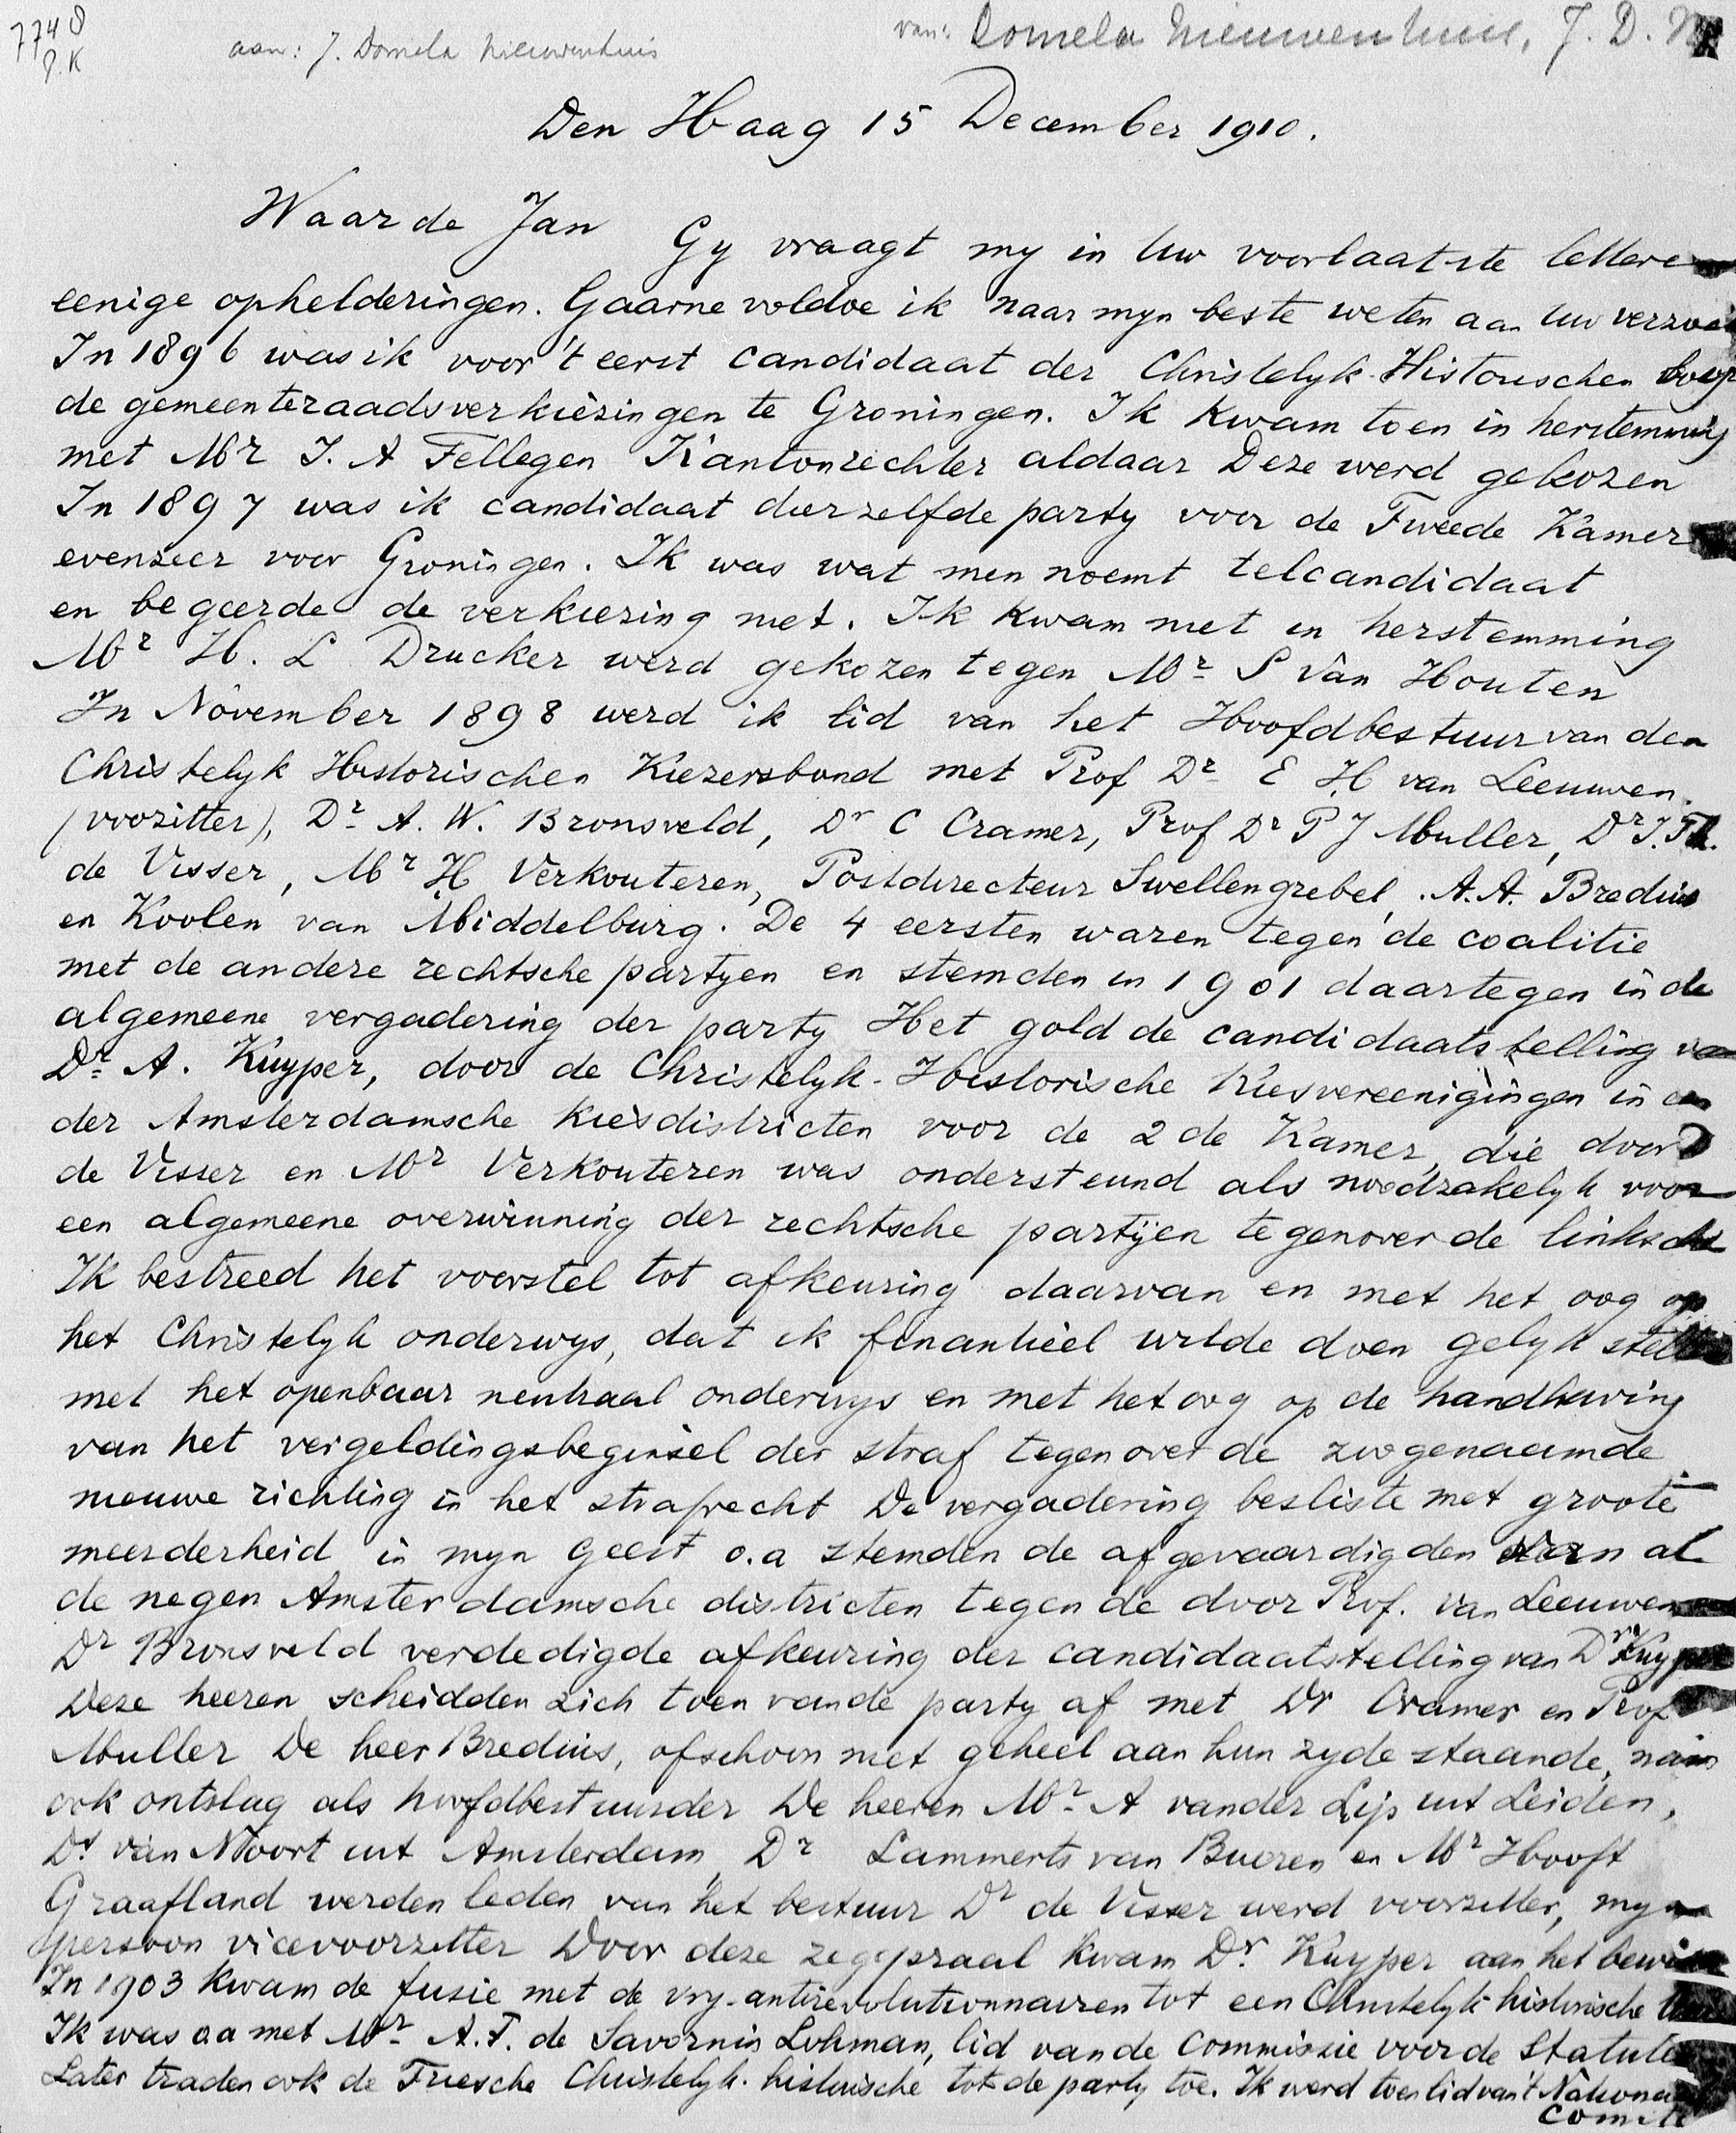 7748
P.K
aan: J. Domela Nieuwenhuis
van: Domela Nieuwenhuis, J. D. N
Den Haag 15 December 1910.
Waarde Jan Gy vraagt my in Uw voorlaatste lettere
eenige ophelderingen. Gaarne voldoe ik naar myn beste weten aan Uw verzoe
In 1896 was ik voor 't eerst candidaat der Christelyk-Historischen
de gemeenteraadsverkiezingen te Groningen. Ik kwam toen in herstemming
met Mr I. A Tellegen Kantonrechter aldaar Deze werd gekozen
In 1897 was ik candidaat dierzelfde party voor de Tweede Kamer
evenzeer voor Groningen. Ik was wat men noemt telcandidaat
en begeerde de verkiezing niet. Ik kwam niet in herstemming
Mr H. L Drucker werd gekozen tegen Mr S van Houten
In November 1898 werd ik lid van het Hoofdbestuur van den
Christelyk Historischen Kiezersbond met Prof Dr E H van Leeuwen
(voorzitter), Dr A. W. Bronsveld, Dr C Cramer, Prof Dr P J Muller, Dr J. Th.
de Visser, Mr H Verkouteren, Postdirecteur Swellengrebel, A. A. Bredius
en Koolen van Middelburg. De 4 eersten waren tegen de coalitie
met de andere rechtsche partyen en stemden in 1901 daartegen in de
algemeene vergadering der party Het gold de candidaatstelling van
Dr A. Kuyper, door de Christelyk-Historische Kiesvereenigingen in een
der Amsterdamsche kiesdistricten voor de 2de Kamer, die door D
de Visser en Mr Verkouteren was ondersteund als noodzakelyk voor
een algemeene overwinning der rechtsche partijen tegenover de linksche
Ik bestreed het voorstel tot afkeuring daarvan en met het oog op
het Christelyk onderwys, dat ik finantieel wilde doen gelyk stell
met het openbaar neutraal onderwys en met het oog op de handhaving
van het vergeldingsbeginsel der straf tegenover de zoogenaamde
nieuwe richting in het strafrecht De vergadering besliste met groote
meerderheid in myn geest o.a stemden de afgevaardigden van al
de negen Amsterdamsche districten tegen de door Prof. van Leeuwen
Dr Bronsveld verdedigde afkeuring der candidaatstelling van Dr Kuyper
Deze heeren scheidden zich toen van de party af met Dr Cramer en Prof
Muller De heer Bredius, ofschoon niet geheel aan hun zyde staande, nam
ook ontslag als hoofdbestuurder De heeren Mr A van der Lip uit Leiden,
Dr van Noort uit Amsterdam, Dr Lammerts van Bueren en Mr Hooft
Graafland werden leden van het bestuur Dr de Visser werd voorzitter, myn
persoon vicevoorzitter Door deze zegepraal kwam Dr Kuyper aan het bewi
In 1903 kwam de fusie met de vry-antirevolutionnairen tot een Christelyk historische
Ik was oa met Mr A. F. de Savornin Lohman, lid van de commissie voor de Statute
Later traden ook de Friesche Christelyk-historische tot de party toe. Ik werd toen lid van 't Nationa
Comité